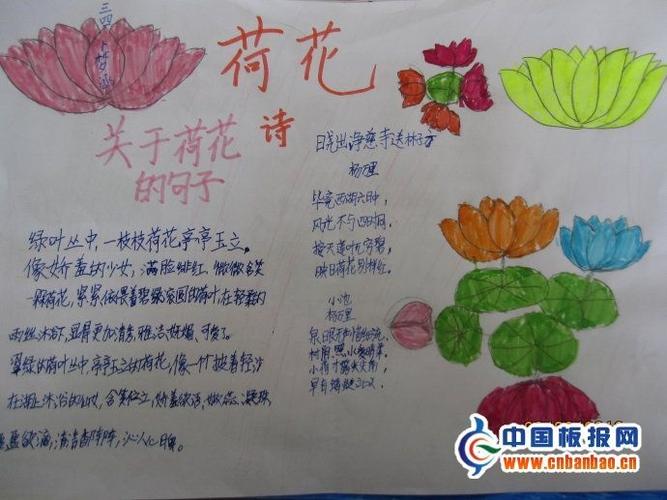 三四
荷花
诗
关于荷花
的句子
绿叶丛中，一枝枝荷花亭亭玉立。
像娇羞的少女，满脸绯红，微微含笑
一颗荷花，紧紧依偎着碧绿滚圆的荷叶，在轻柔的
雨丝沐浴下，显得更加清秀，雅洁，妩媚、可爱了。
翠绿的荷叶丛中，亭亭玉立的荷花，像一个披着轻沙
在湖上沐浴的仙女，含笑伫立，娇羞欲语，嫩蕊凝珠
盈盈欲滴，清香阵阵，沁人心脾。
晓出净慈寺送林子方
杨万里
毕竟西湖六月中，
风光不与四时同，
接天莲叶无穷碧，
映日荷花别样红。
小池
杨万里
泉眼无声惜细流，
树阴照水爱晴柔。
小荷才露尖尖角，
早有蜻蜓立上
中国板报网
www.cnbanbao.cn